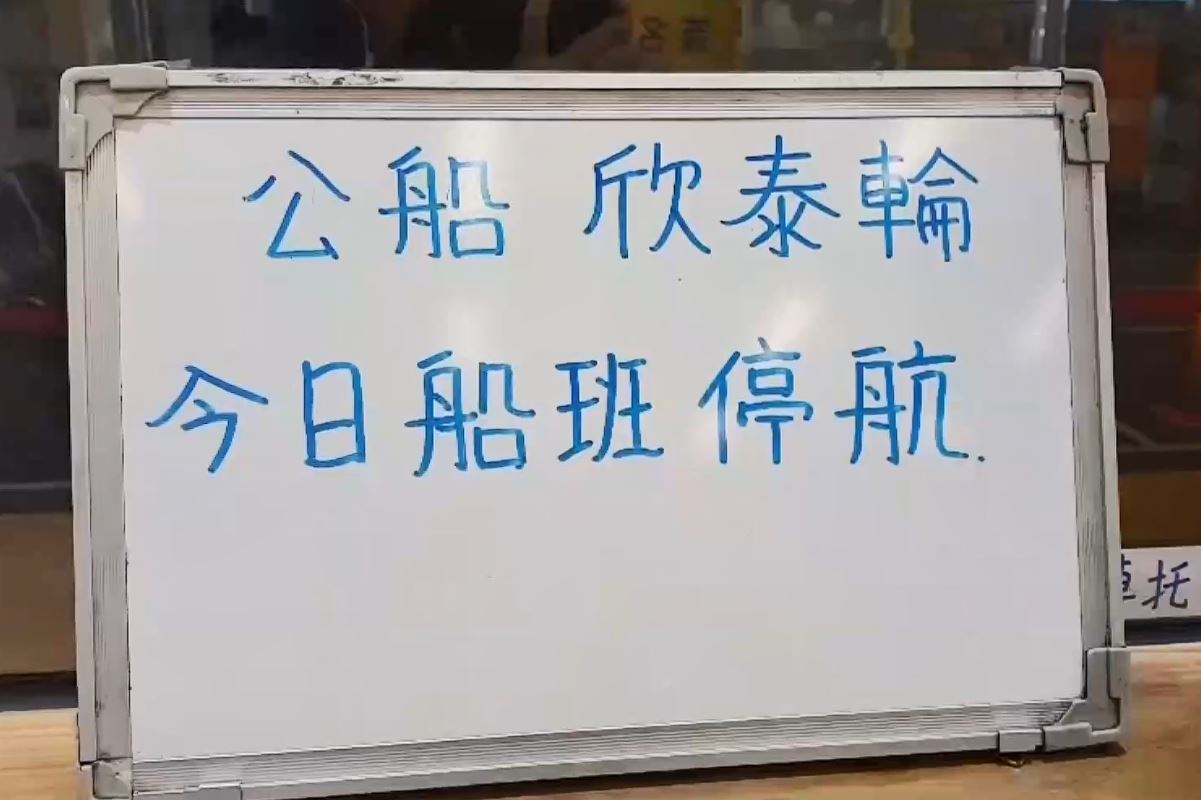 公船 欣泰輪
今日船班停航.
托